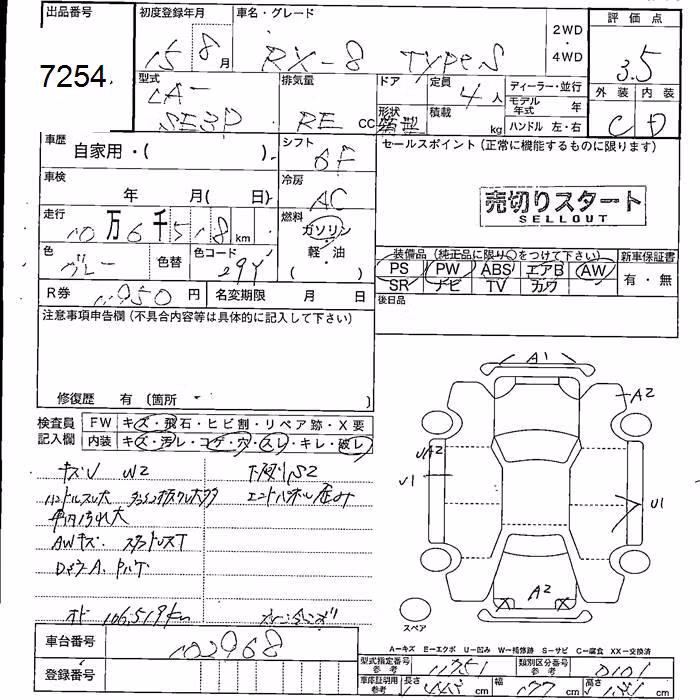 出品番号
7254
初度登録年月
15 8月
車名・グレード
RX-8 TypeS
2WD
・
4WD
評価点
3.5
外装 内装
C D
型式
LA-
SE3P
排気量
RE cc
ドア
形状
箱型
定員
4人
積載
kg
ディーラー・並行
モデル年式 年
ハンドル 左・右
車歴
自家用・( )
シフト
6F
セールスポイント (正常に機能するものに限ります)
売切りスタート
SELLOUT
車検
年 月( 日)
冷房
AC
走行
10万6千518km
燃料
ガソリン
軽・油
( )
色
グレー
色替
色コード
29Y
装備品 (純正品に限り○をつけて下さい)
PS PW ABS エアB AW
SR ナビ TV カワ
新車保証書
有・無
R券
円
名変期限 月 日
後日品
注意事項申告欄 (不具合内容等は具体的に記入して下さい)
修復歴 有 (箇所 )
検査員
記入欄
FW キズ・飛石・ヒビ割・リペア跡・X要
内装 キズ・汚レ・コゲ・穴・スレ・キレ・破レ
キズU W2
下廻りS2
ハンドルスレ大
エンドパネル凸凹
車内汚れ大
AWキズ
106,519km
A1
A2
UA2
U1
U1
A2
スペア
A-キズ E-エクボ U-凹み W-補修跡 S-サビ C-腐食 XX-交換済
車台番号
102968
登録番号
型式指定番号
参考
11751
類別区分番号
参考
0101
車庫証明用
参考
長さ cm
幅 177 cm
高さ cm